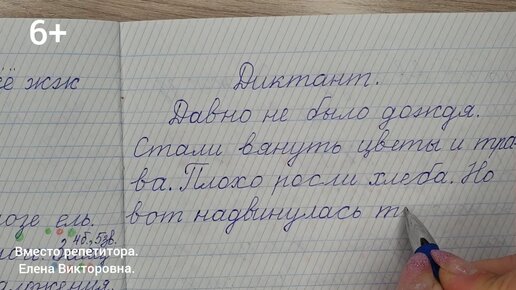 6+
жзк
Диктант.
Давно не было дождя.
Стали вянуть цветы и тра-
ва. Плохо росли хлеба. Но
вот надвинулась т
ель.
4б, 5зв.
Вместо репетитора.
Елена Викторовна.